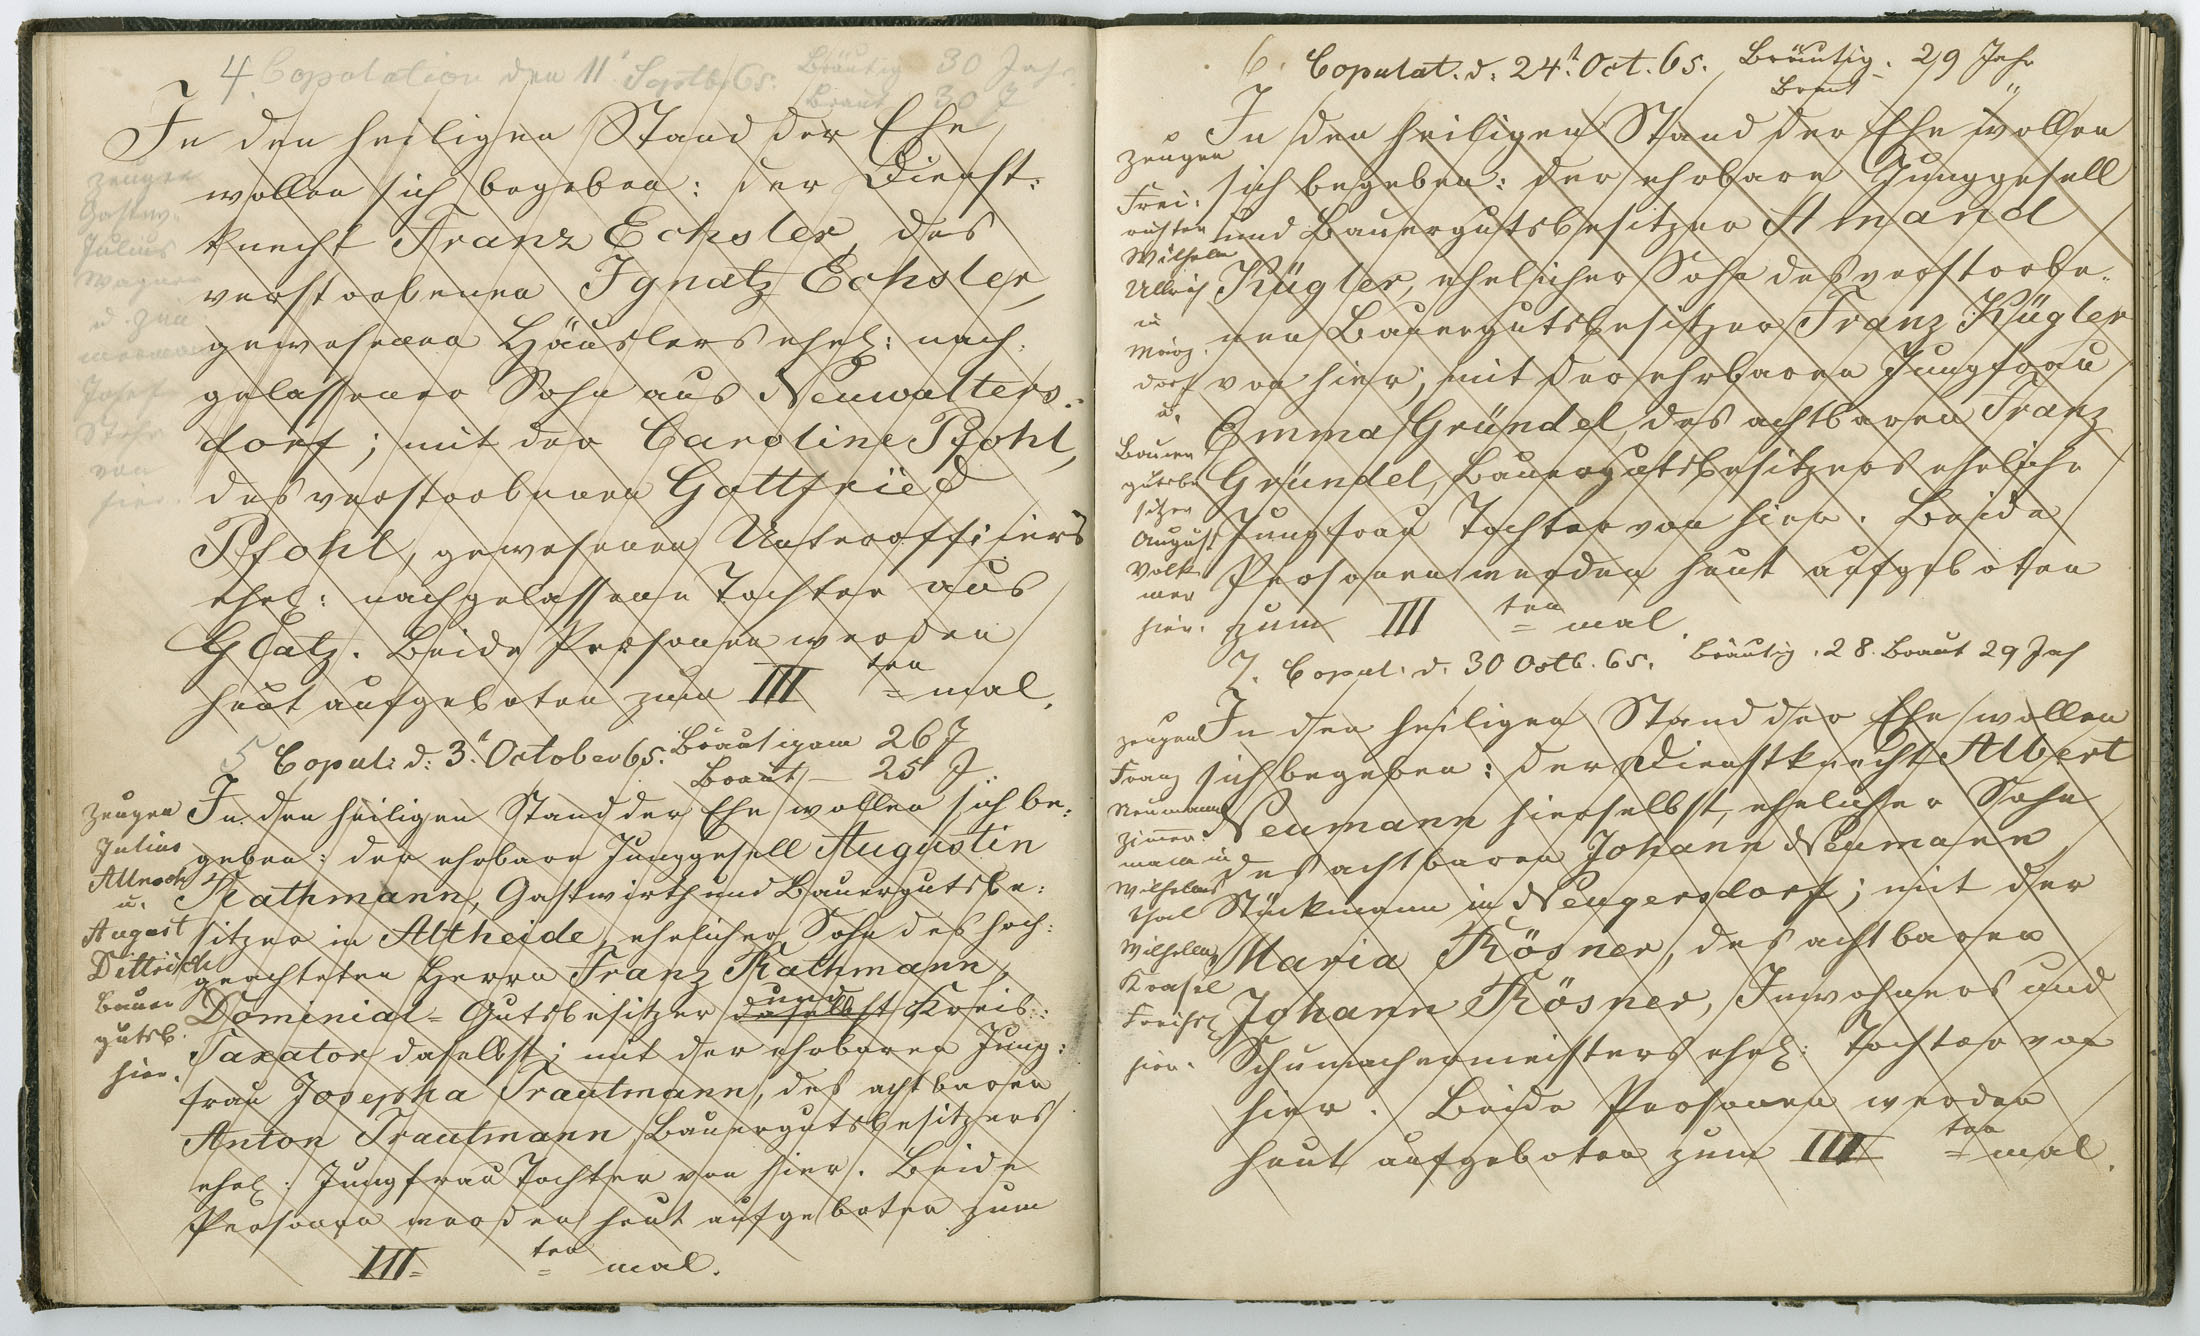 4. Copulation den 11t Septb. 65. Bräutig. 30 Jahr.
Braut 30 J
In den heiligen Stand der Ehe
wollen sich begeben: der Dienst-
knecht Franz Echsler, des
verstorbenen Ignatz Echsler,
gewesenen Häuslers ehel: nach-
gelassener Sohn aus Neuwalters-
dorf; mit der Caroline Pfohl,
des verstorbenen Gottfried
Pfohl, gewesenen Unteroffiziers
ehel: nachgelassene Tochter aus
Glatz. Beide Personen werden
heut aufgeboten zum III ten mal.
Zeugen
Gastw.
Julius
Wagner
u. Zim
mermann
Josef
von
hier.
5 Copul: d: 3t October 65. Bräutigam 26 J
Braut — 25 J.
In den heiligen Stand der Ehe wollen sich be:
geben: der ehrbare Junggesell Augustin
Rathmann, Gastwirth und Bauergutsbe:
sitzer in Altheide, ehelicher Sohn des hoch:
geachteten Herrn Franz Rathmann,
Dominial-Gutsbesitzer daselbst und Kreis:
Taxator daselbst; mit der ehrbaren Jung:
frau Josepha Trautmann, des achtbaren
Anton Trautmann Bauergutsbesitzers
ehel: Jungfrau Tochter von hier. Beide
Personen werden heut aufgeboten zum
III ten mal.
Zeugen
Julius
u.
August
Dittrich
Bauer
gutsb.
hier.
6. Copulat. d. 24t Oct. 65. Bräutig. 29 Jahr
Braut "
In den heiligen Stand der Ehe wollen
sich begeben: der ehrbare Junggesell
und Bauergutsbesitzer Amand
Kügler, ehelicher Sohn des verstorbe-
nen Bauergutsbesitzer Franz Kügler
von hier; mit der ehrbaren Jungfrau
Emma Gründel, des achtbaren Franz
Gründel, Bauergutsbesitzers eheliche
Jungfrau Tochter von hier. Beide
Personen werden heut aufgeboten
zum III ten mal.
Zeugen
Frei:
richter
Wilhelm
Ullrich
in
dorf
u.
Bauer
gutsbe
sitzer
August
Volk
mer
hier.
7. Copul: d. 30 Octb. 65. Bräutig. 28. Braut 29 Jah
In den heiligen Stand der Ehe wollen
sich begeben: der Dienstknecht Albert
Neumann hierselbst, ehelicher Sohn
des achtbaren Johann Neumann
Stückmann in Neugersdorf; mit der
Maria Rösner, des achtbaren
Johann Rösner, Inwohners und
Schumachermeisters ehel: Tochter von
hier. Beide Personen werden
heut aufgeboten zum III ten mal.
Zeugen
Franz
Neumann
Zimmer
mann in
Wilhelms
thal
Wilhelm
hier.